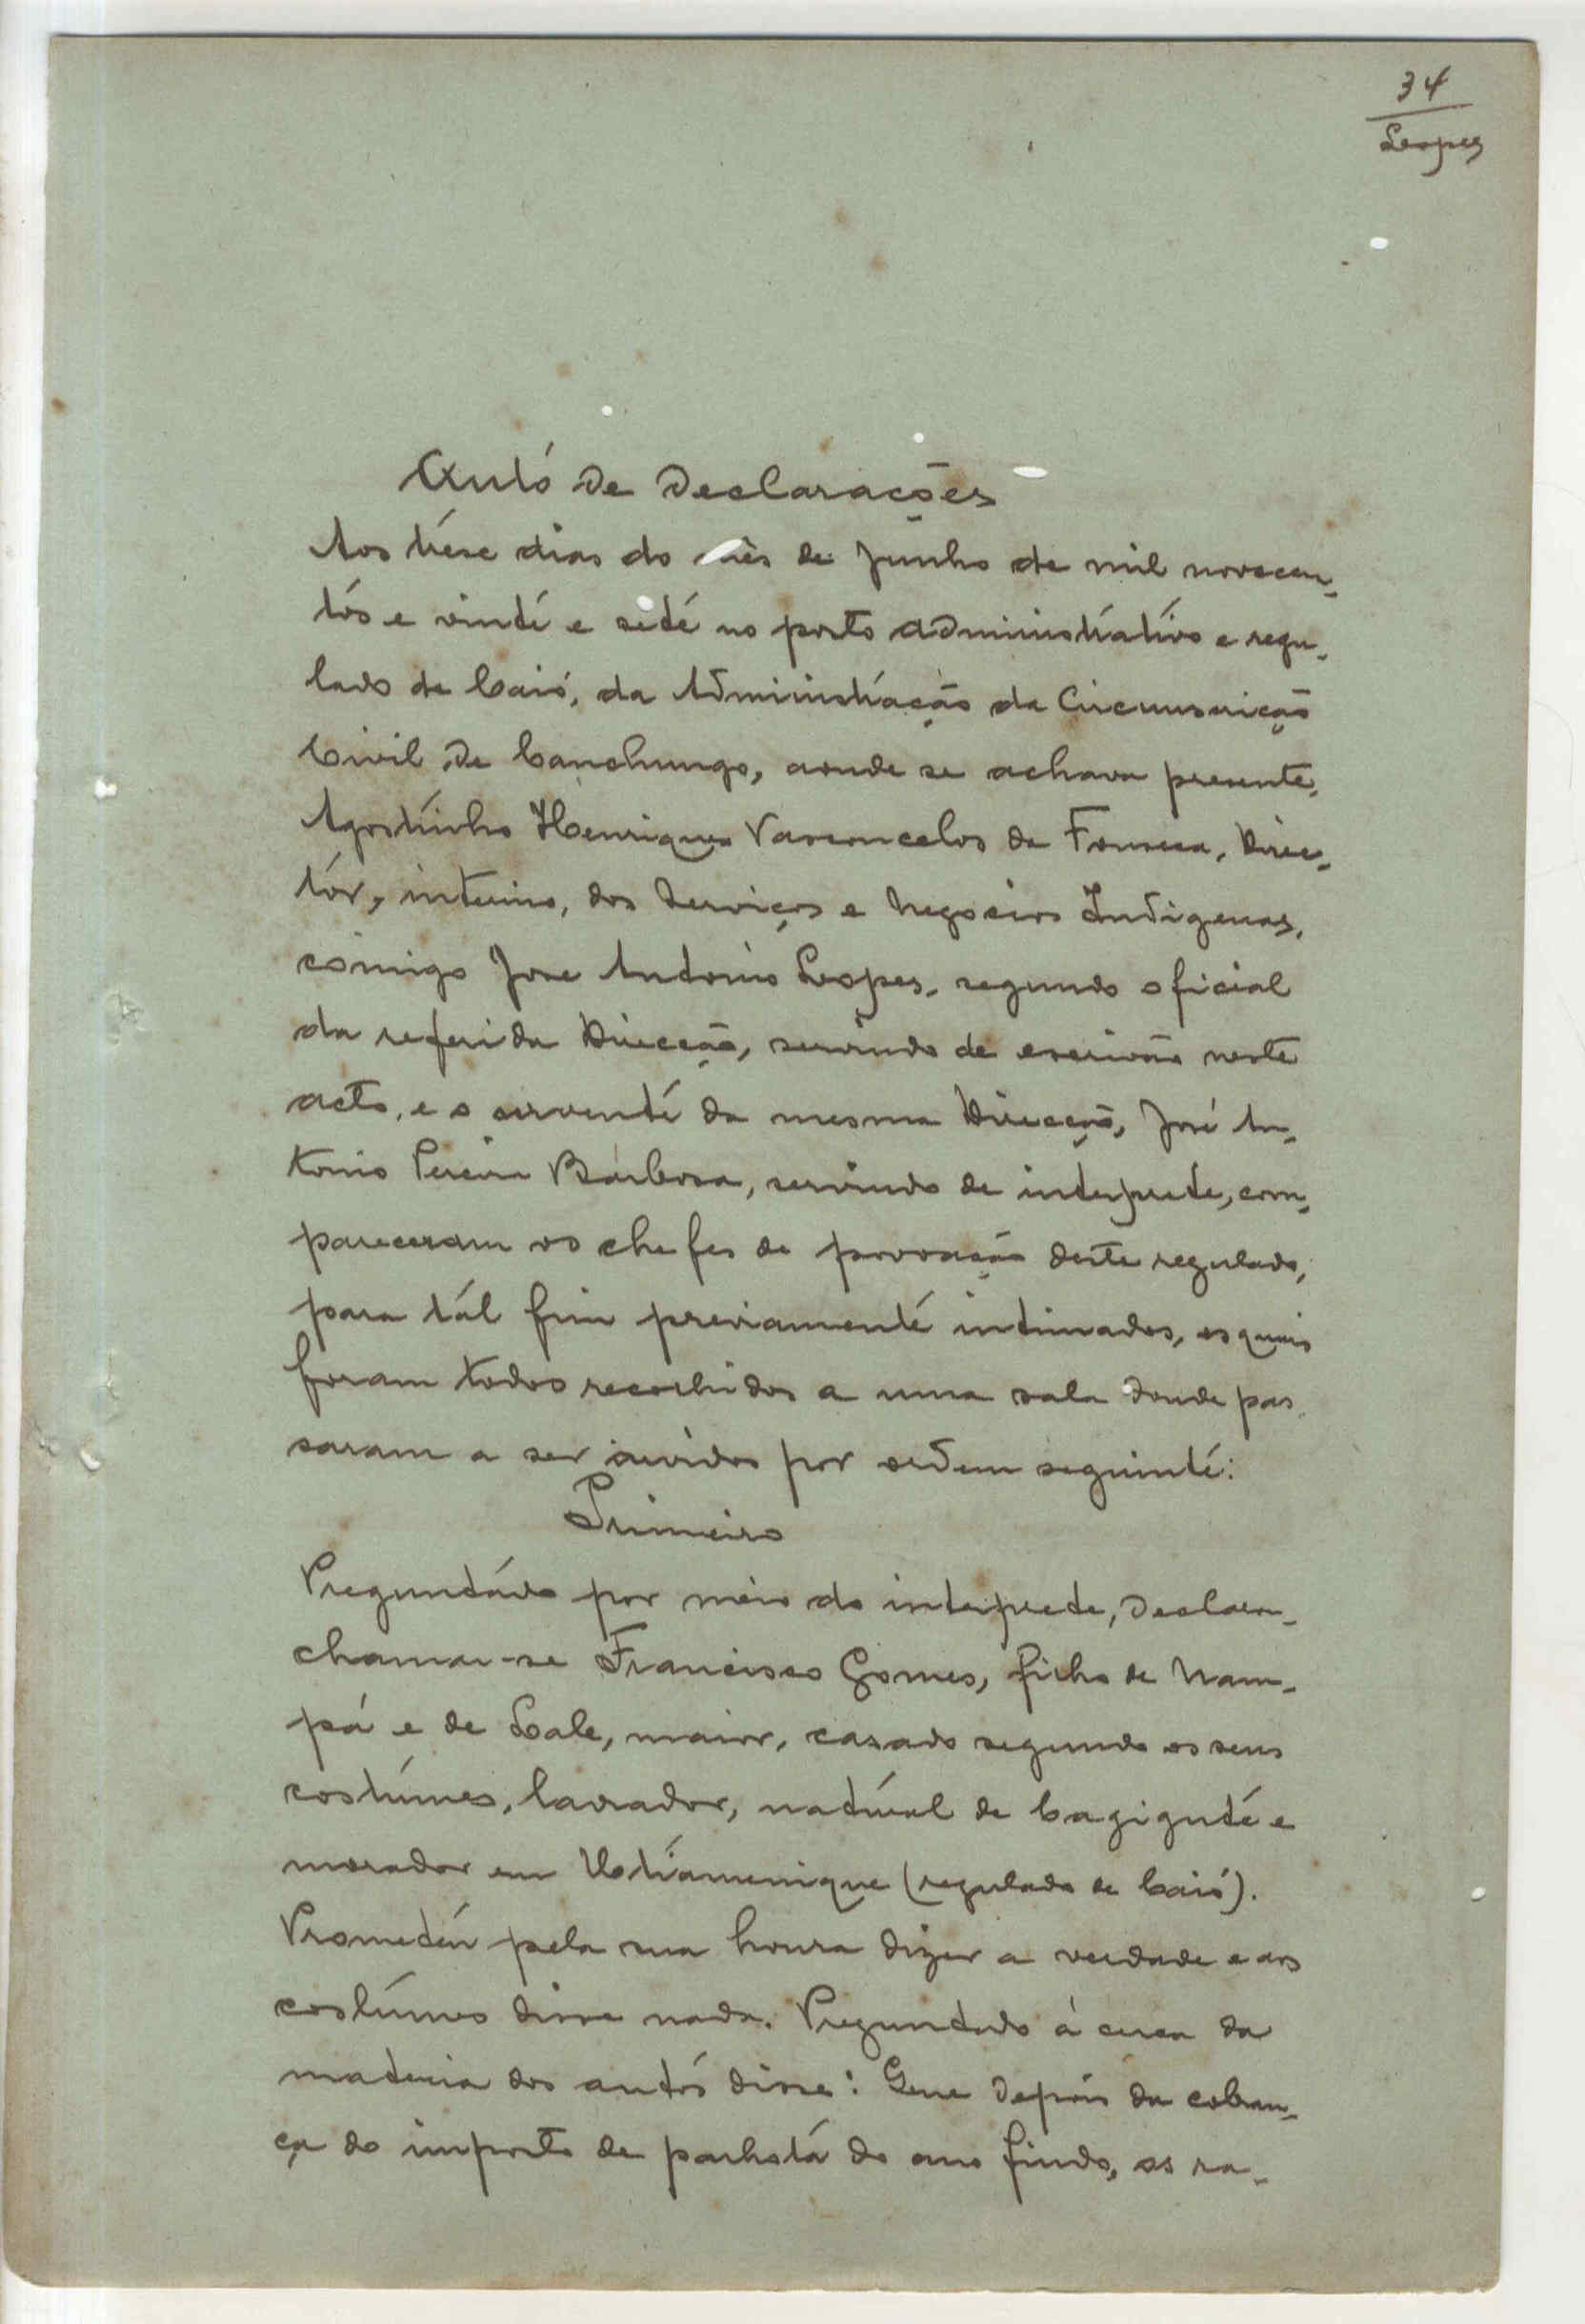 34
Lopes
Auto de Declarações
Aos trese dias do mês de Junho de mil novecen-
tos e vinte e sete no posto administrativo e regu-
lado de Caió, da Administração da Circunscrição
Civil de Canchungo, aonde se achava presente,
Agostinho Henriques Vasconcelos da Fonseca, Direc-
tor, interino, dos Serviços e Negocios Indigenas,
comigo Jose Antonio Lopes, segundo oficial
da referida Direcção, servindo de escrivão neste
acto, e o servente da mesma Direcção, José An-
tonio Pereira Barbosa, servindo de interprete, com-
pareceram os chefes de povoação deste regulado,
para tal fim previamente intimados, os quais
foram todos recolhidos a uma sala donde pas-
saram a ser ouvidos por ordem seguinte:
Primeiro
Preguntado por meio do interprete, declarou
chamar-se Francisco Gomes, filho de Nam-
pá e de Lale, maior, casado segundo os seus
costumes, lavrador, natural de Cagigute e
morador em Utiamenique (regulado de Caió).
Prometeu pela sua honra dizer a verdade e aos
costumes disse nada. Preguntado á cerca da
materia dos autos disse: Que depois da cobran-
ça do imposto de palhota do ano findo, os ra-